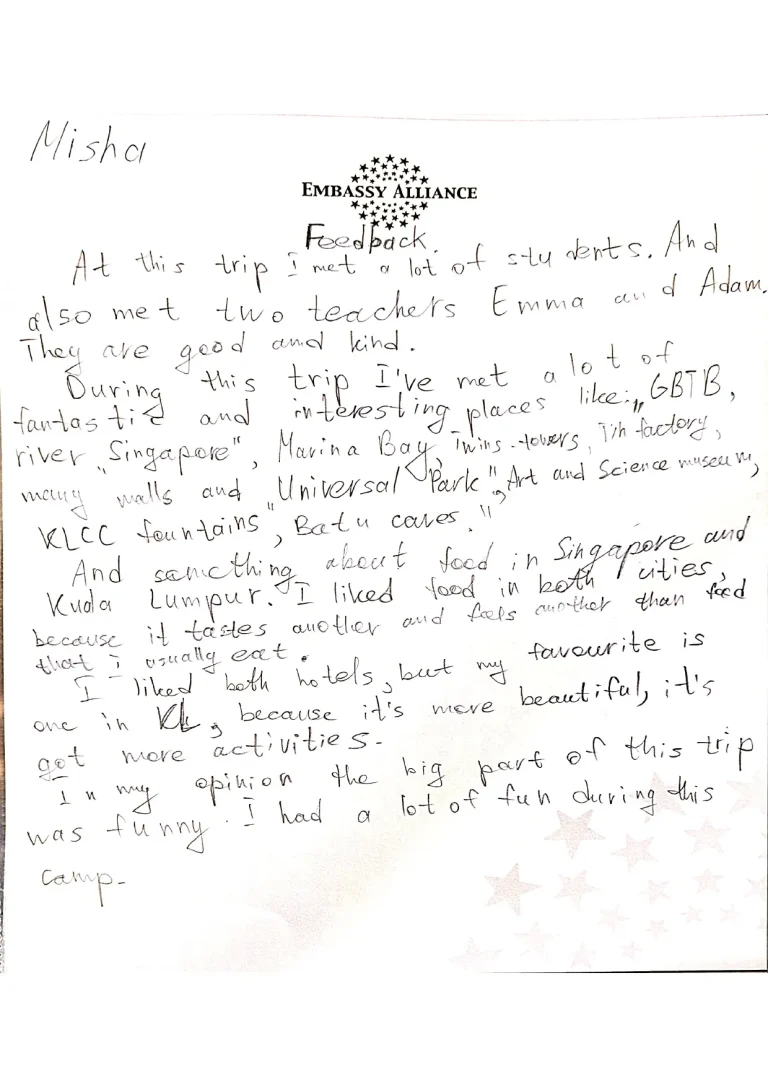 Misha
EMBASSY ALLIANCE
Feedback.
At this trip I met a lot of students. And
also met two teachers Emma and Adam.
They are good and kind.
During this trip I've met a lot of
fantastic and interesting places like: „GBTB,
river „Singapore", Marina Bay, Twins-towers, Tin factory,
many malls and „Universal Park", Art and Science museum,
KLCC fountains, Batu caves."
And something about food in Singapore and
Kuala Lumpur. I liked food in both cities,
because it tastes another and feels another than food
that i usually eat.
I liked both hotels, but my favourite is
one in KL, because it's more beautiful, it's
got more activities.
In my opinion the big part of this trip
was funny. I had a lot of fun during this
camp.